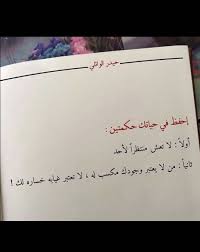 حيدر الوائلي
إحفظ في حياتك حكمتين :
أولاً : لا تعش منتظراً لأحد
ثانياً : من لا يعتبر وجودك مكسب له ، لا تعتبر غيابه خساره لك !